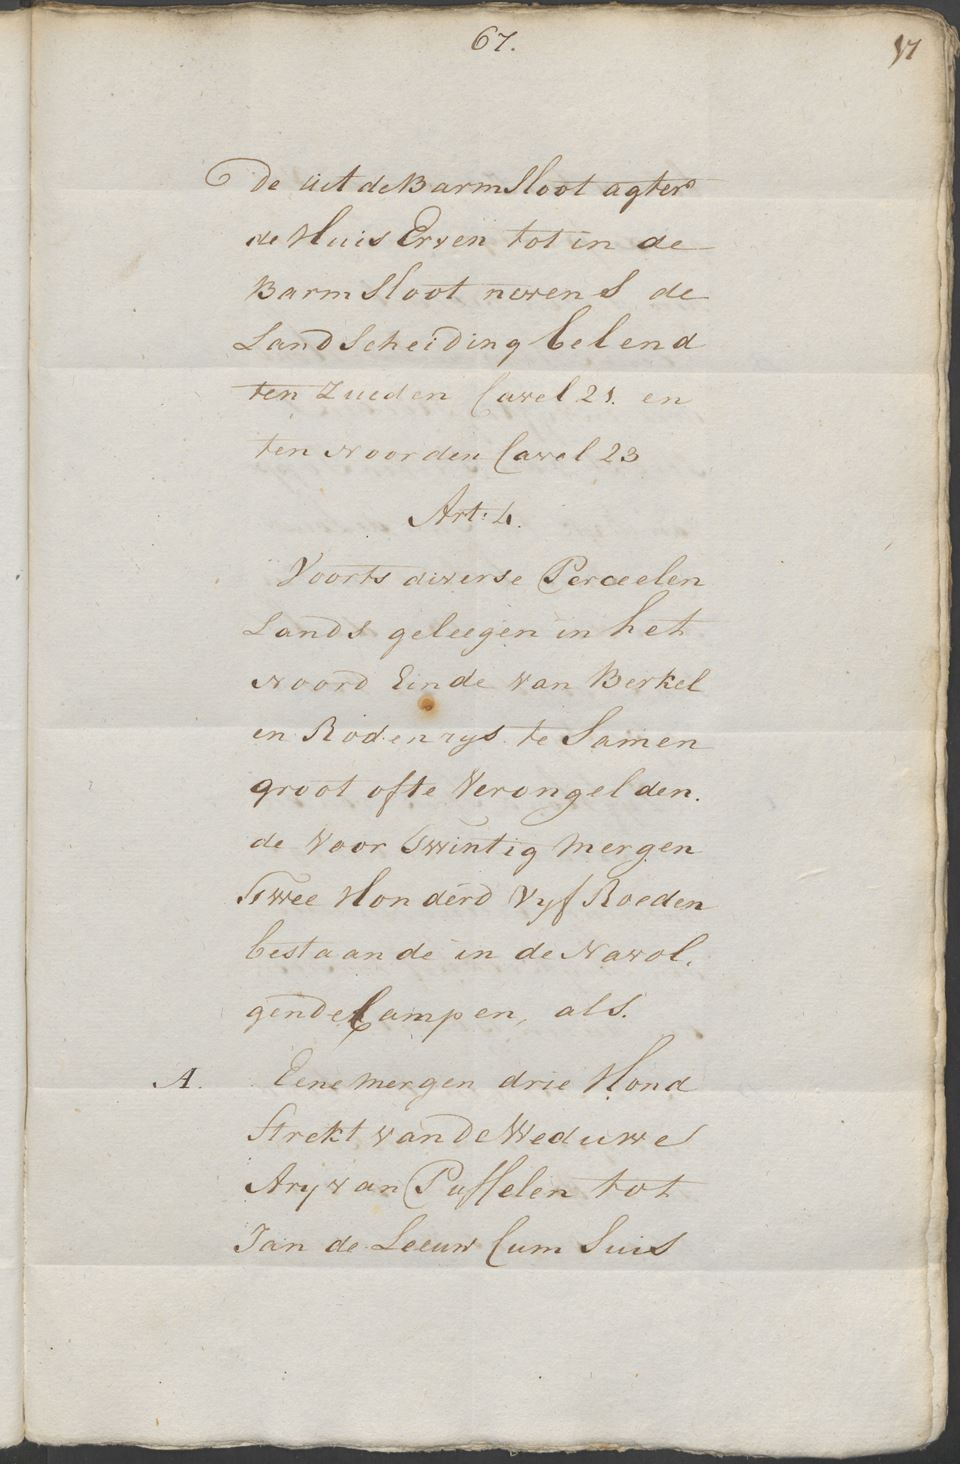 67.
17
De uit de Barm Sloot agter
de Huis Erven tot in de
Barm Sloot nevens de
Land Scheiding belend
ten Zuiden Cavel 21. en
ten Noorden Cavel 23
Art: 4.
Voorts diverse Perceelen
Lands geleegen in het
Noord Einde van Berkel
en Rodenrys te Samen
groot ofte Verongelden.
de voor Twintig Mergen
Twee Honderd Vyf Roeden
bestaande in de Navol.
gende Campen, als.
A. Eene Mergen drie Hond
Strekt van de Weduwe
Ary van Puffelen tot
Jan de Leeuw Cum Suis